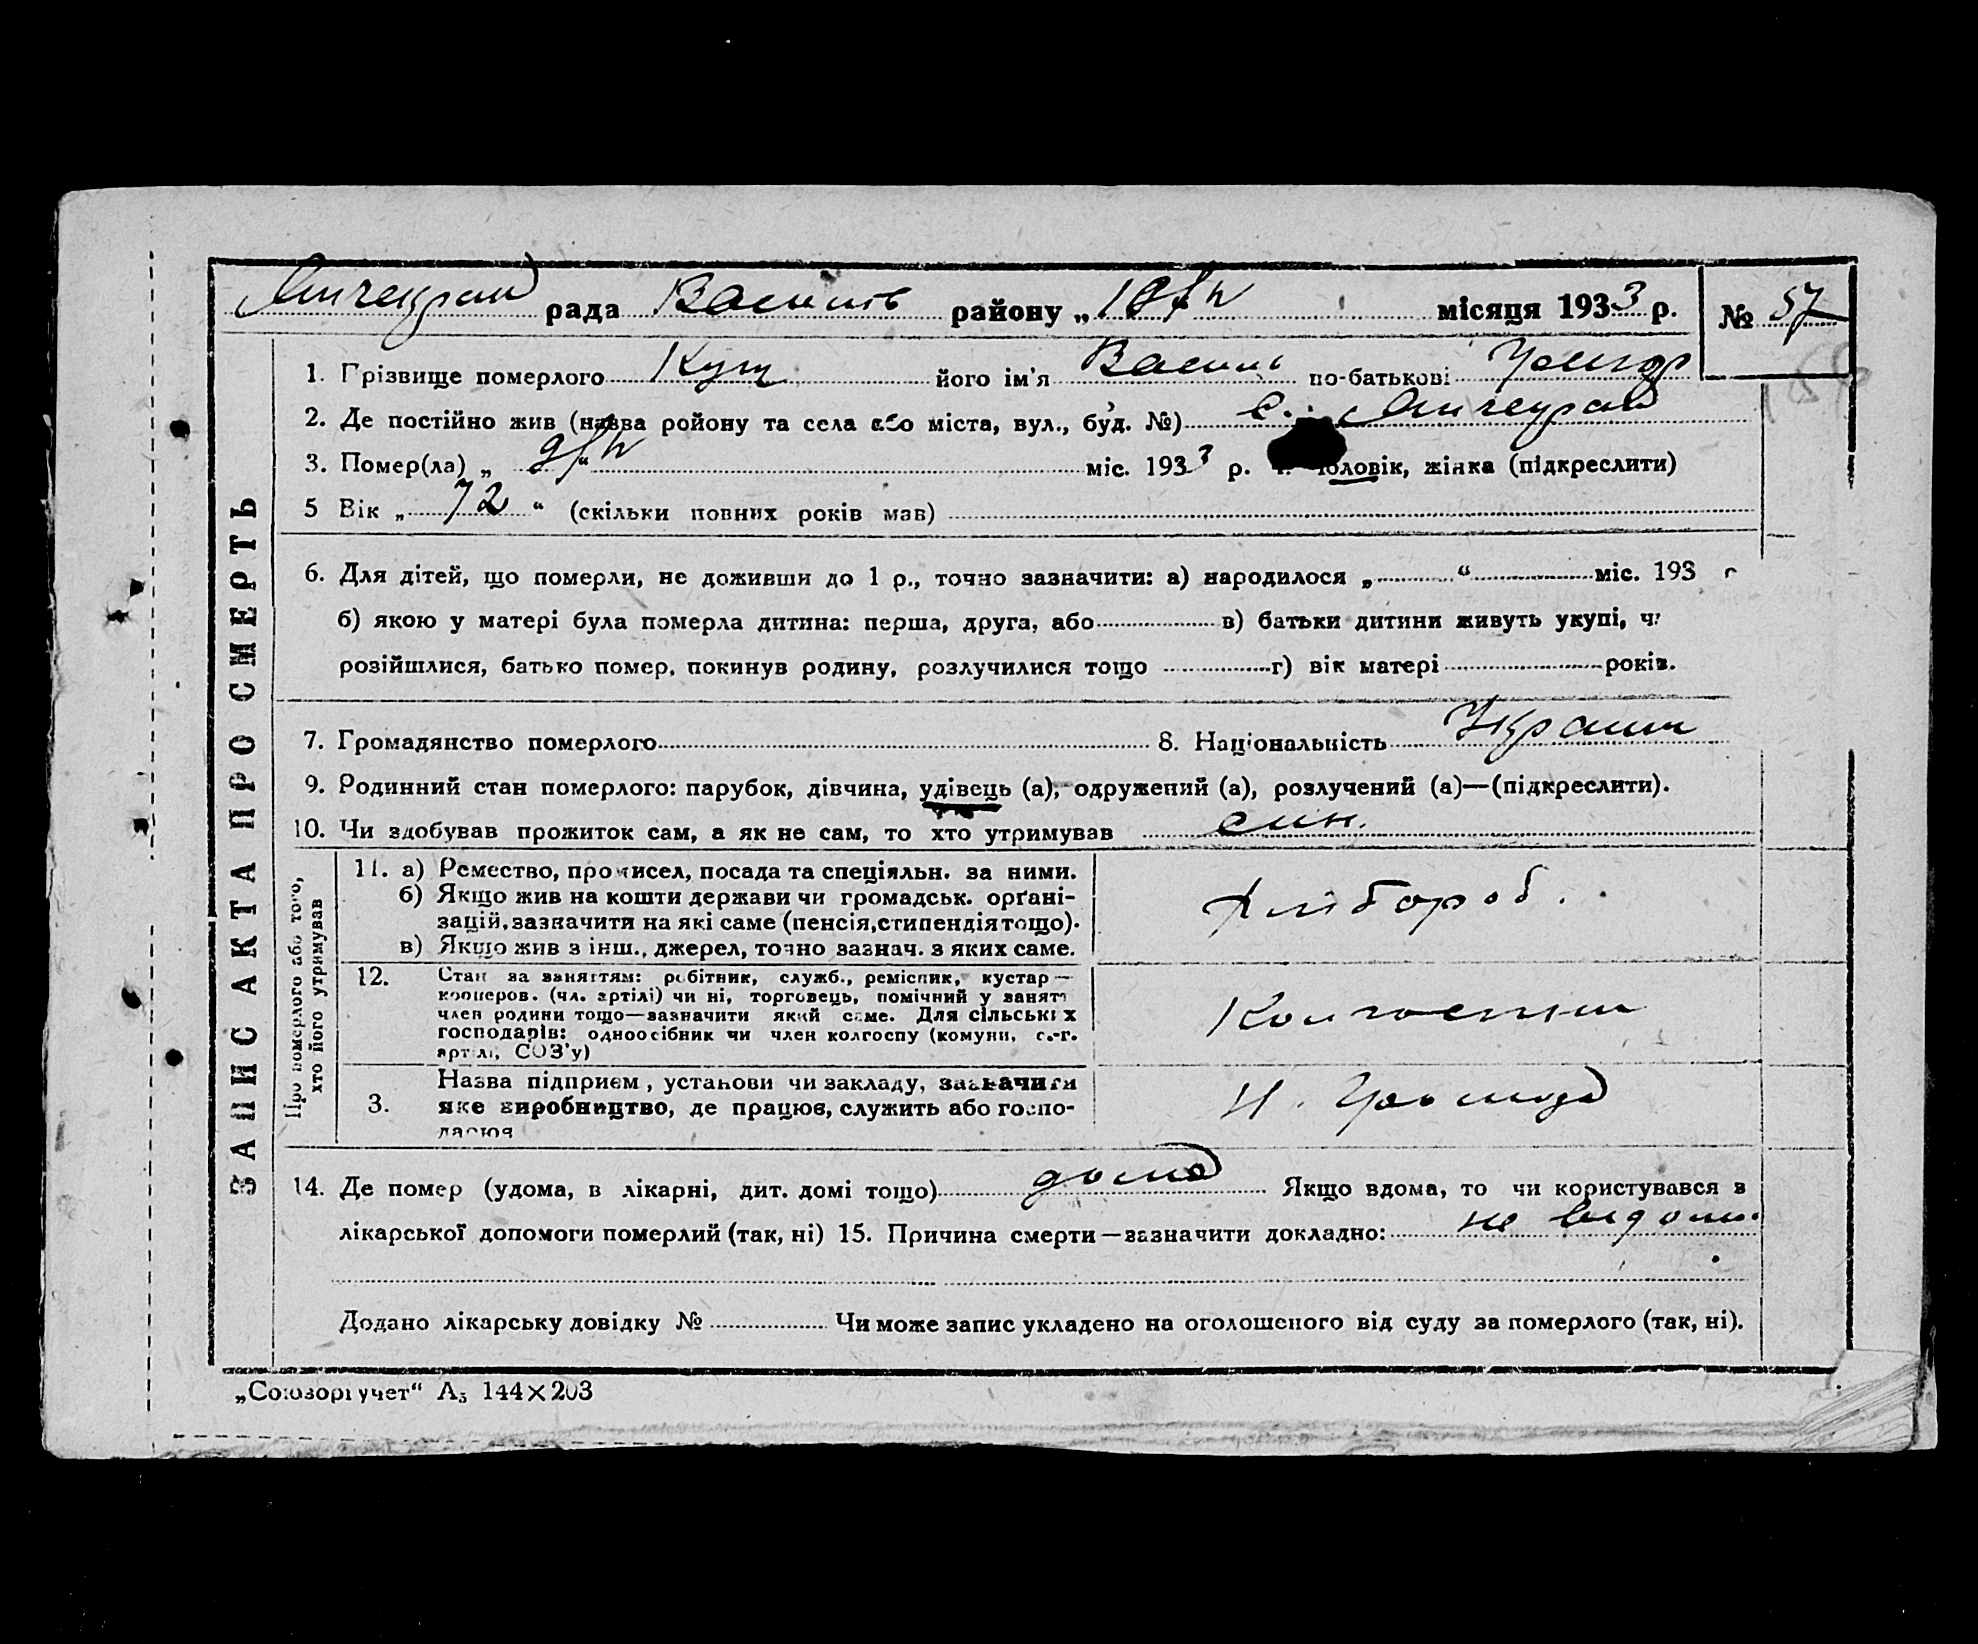 рада Васильк району „10/IV місяця 1933 р. № 57
1. Грізвище померлого Кущ його ім'я Василь по-батькові
2. Де постійно жив (назва ройону та села або міста, вул., буд. №) с.
3. Помер(ла) „ 9/IV “ міс. 1933 р. чоловік, жінка (підкреслити)
5 Вік „ 72 “ (скільки повних років мав)
6. Для дітей, що померли, не доживши до 1 р., точно зазначити: а) народилося „ “ міс. 193 р
б) якою у матері була померла дитина: перша, друга, або в) батьки дитини живуть укупі, чи
розійшлися, батько помер, покинув родину, розлучилися тощо г) вік матері років.
7. Громадянство померлого 8. Національність Україн
9. Родинний стан померлого: парубок, дівчина, удівець (а), одружений (а), розлучений (а)—(підкреслити).
10. Чи здобував прожиток сам, а як не сам, то хто утримував син.
ЗАПИС АКТА ПРО СМЕРТЬ
Про померлого або того,
хто його утримував
11. а) Ремество, промисел, посада та спеціяльн. за ними.
б) Якщо жив на кошти держави чи громадськ. орґані-
зацій, зазначити на які саме (пенсія, стипендія тощо).
в) Якщо жив з інш., джерел, точно зазнач. з яких саме.
Хлібороб.
12. Стан за заняттям: робітник, служб., ремісник, кустар —
кооперов. (чл. артілі) чи ні, торговець, помічний у занятт
член родини тощо—зазначити який саме. Для сільських
господарів: одноосібник чи член колгоспу (комуни, с.-г.
артілі, СОЗ'у)
Колгоспник
3. Назва підприєм, установи чи закладу, зазначити
яке виробництво, де працює, служить або госпо-
дарює
14. Де помер (удома, в лікарні, дит. домі тощо) дома Якщо вдома, то чи користувався з
лікарської допомоги померлий (так, ні) 15. Причина смерти — зазначити докладно: не відом.
Додано лікарську довідку № Чи може запис укладено на оголошеного від суду за померлого (так, ні).
„Союзоргучет“ А5 144×203